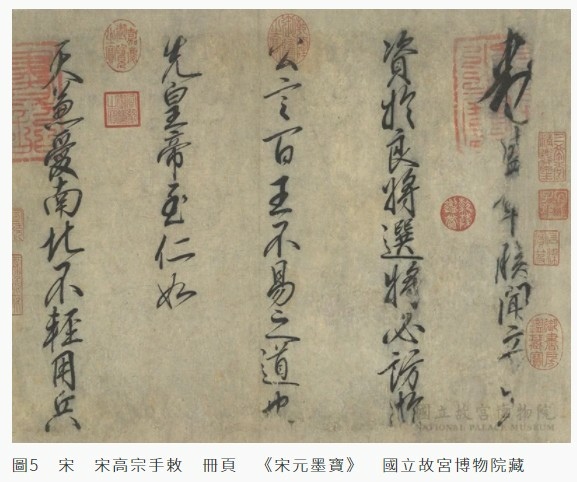 朕聞
資於良將選將必訪於
公言百王不易之道也
先皇帝至仁如
天兼愛南北不輕用兵
國立故宮博物院
NATIONAL PALACE MUSEUM
圖5 宋 宋高宗手敕 冊頁 《宋元墨寶》 國立故宮博物院藏